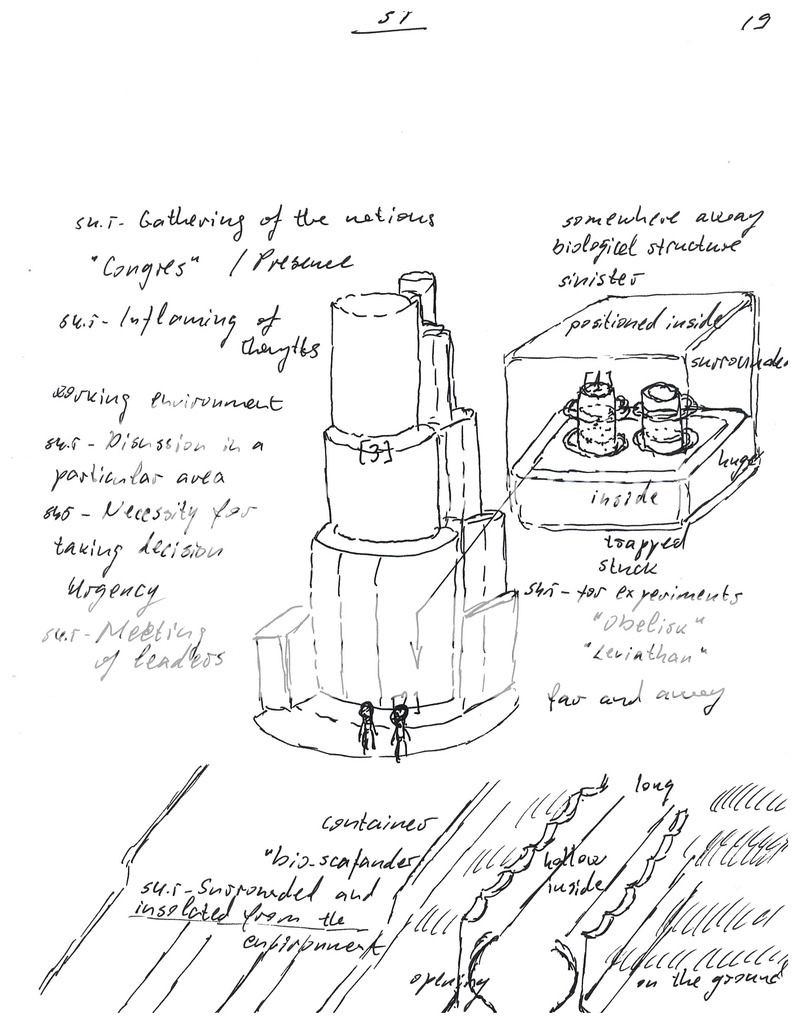 ST
19
sh.s- Gathering of the nations
"Congres" / Presence
sh.s- Inflaming of
thoughts
working environment
sh.s - Disussion in a
particular area
shs - Necessity for
taking decision
Urgency
sh.s- Meeting
of leaders
[3]
somewhere away
biological structure
sinister
positioned inside
surrounded
huge
inside
trapped
stuck
shs - for experiments
"Obelisk"
"Leviathan"
far and away
container
"bio-scafander"
sh.s- Surrounded and
insolated from the
environment
long
hollow
inside
opening
on the ground